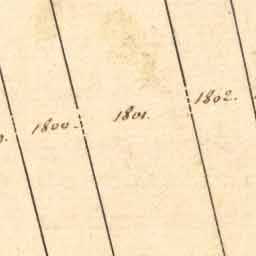 1800.
1801.
1802.